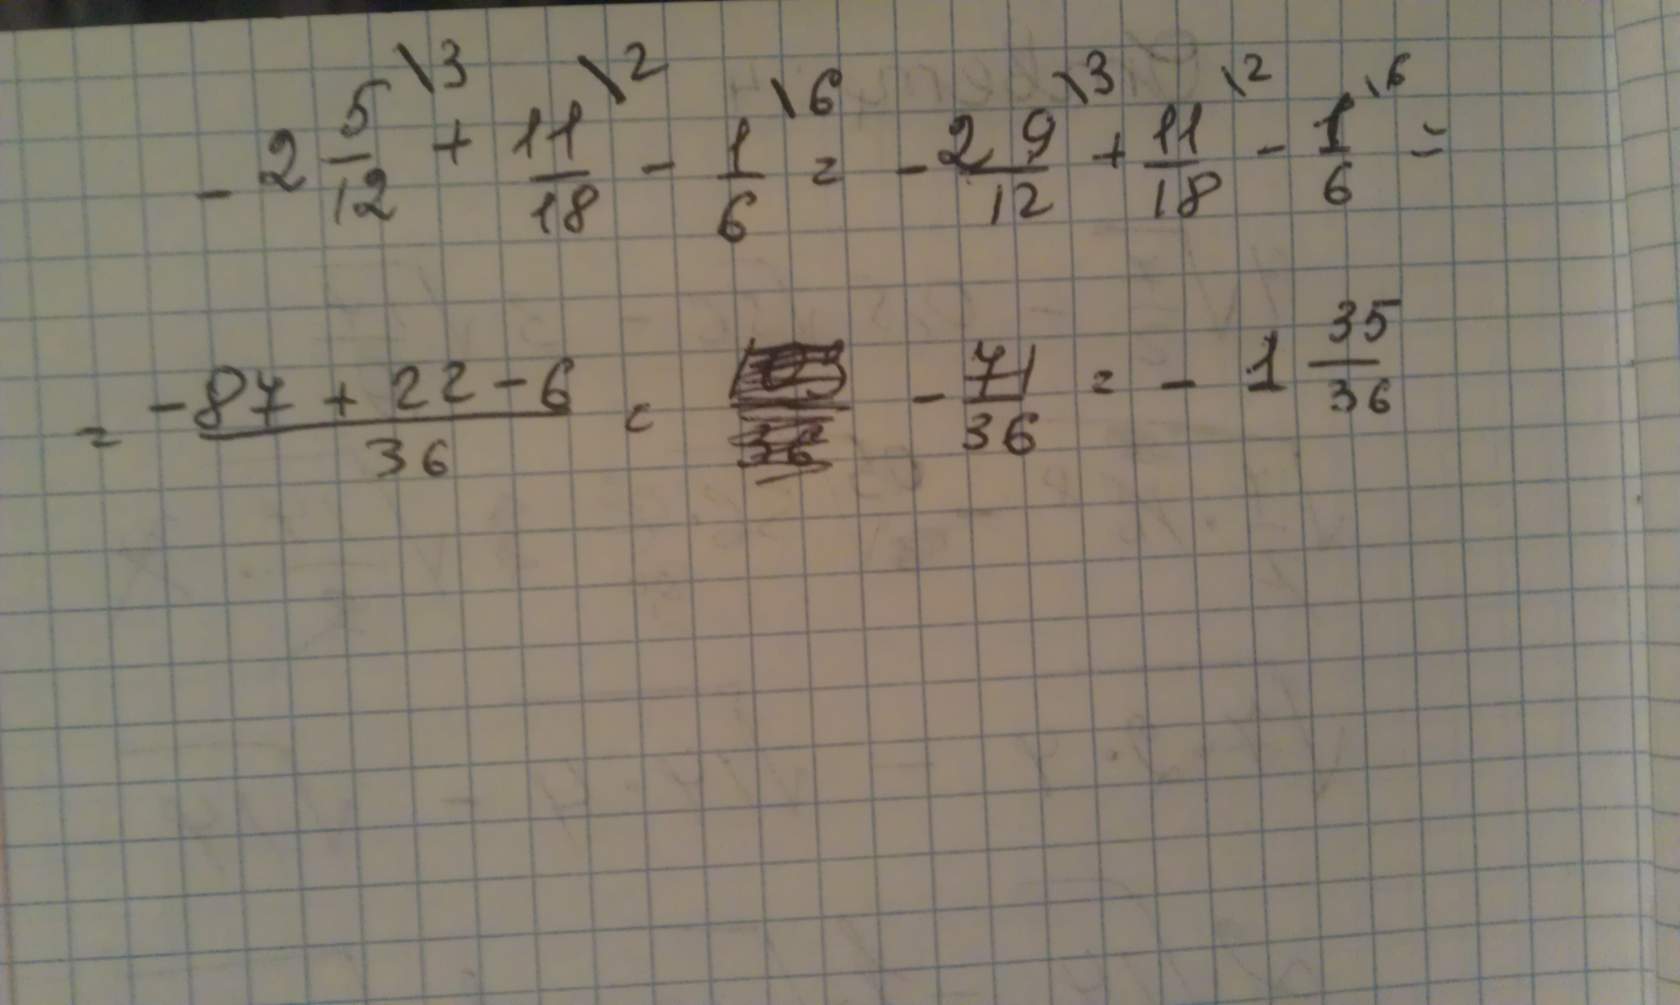 - 2 5/12 \3 + 11/18 \2 - 1/6 \6 = - 29/12 \3 + 11/18 \2 - 1/6 \6 =
= -87 + 22 - 6 / 36 = - 71/36 = - 1 35/36